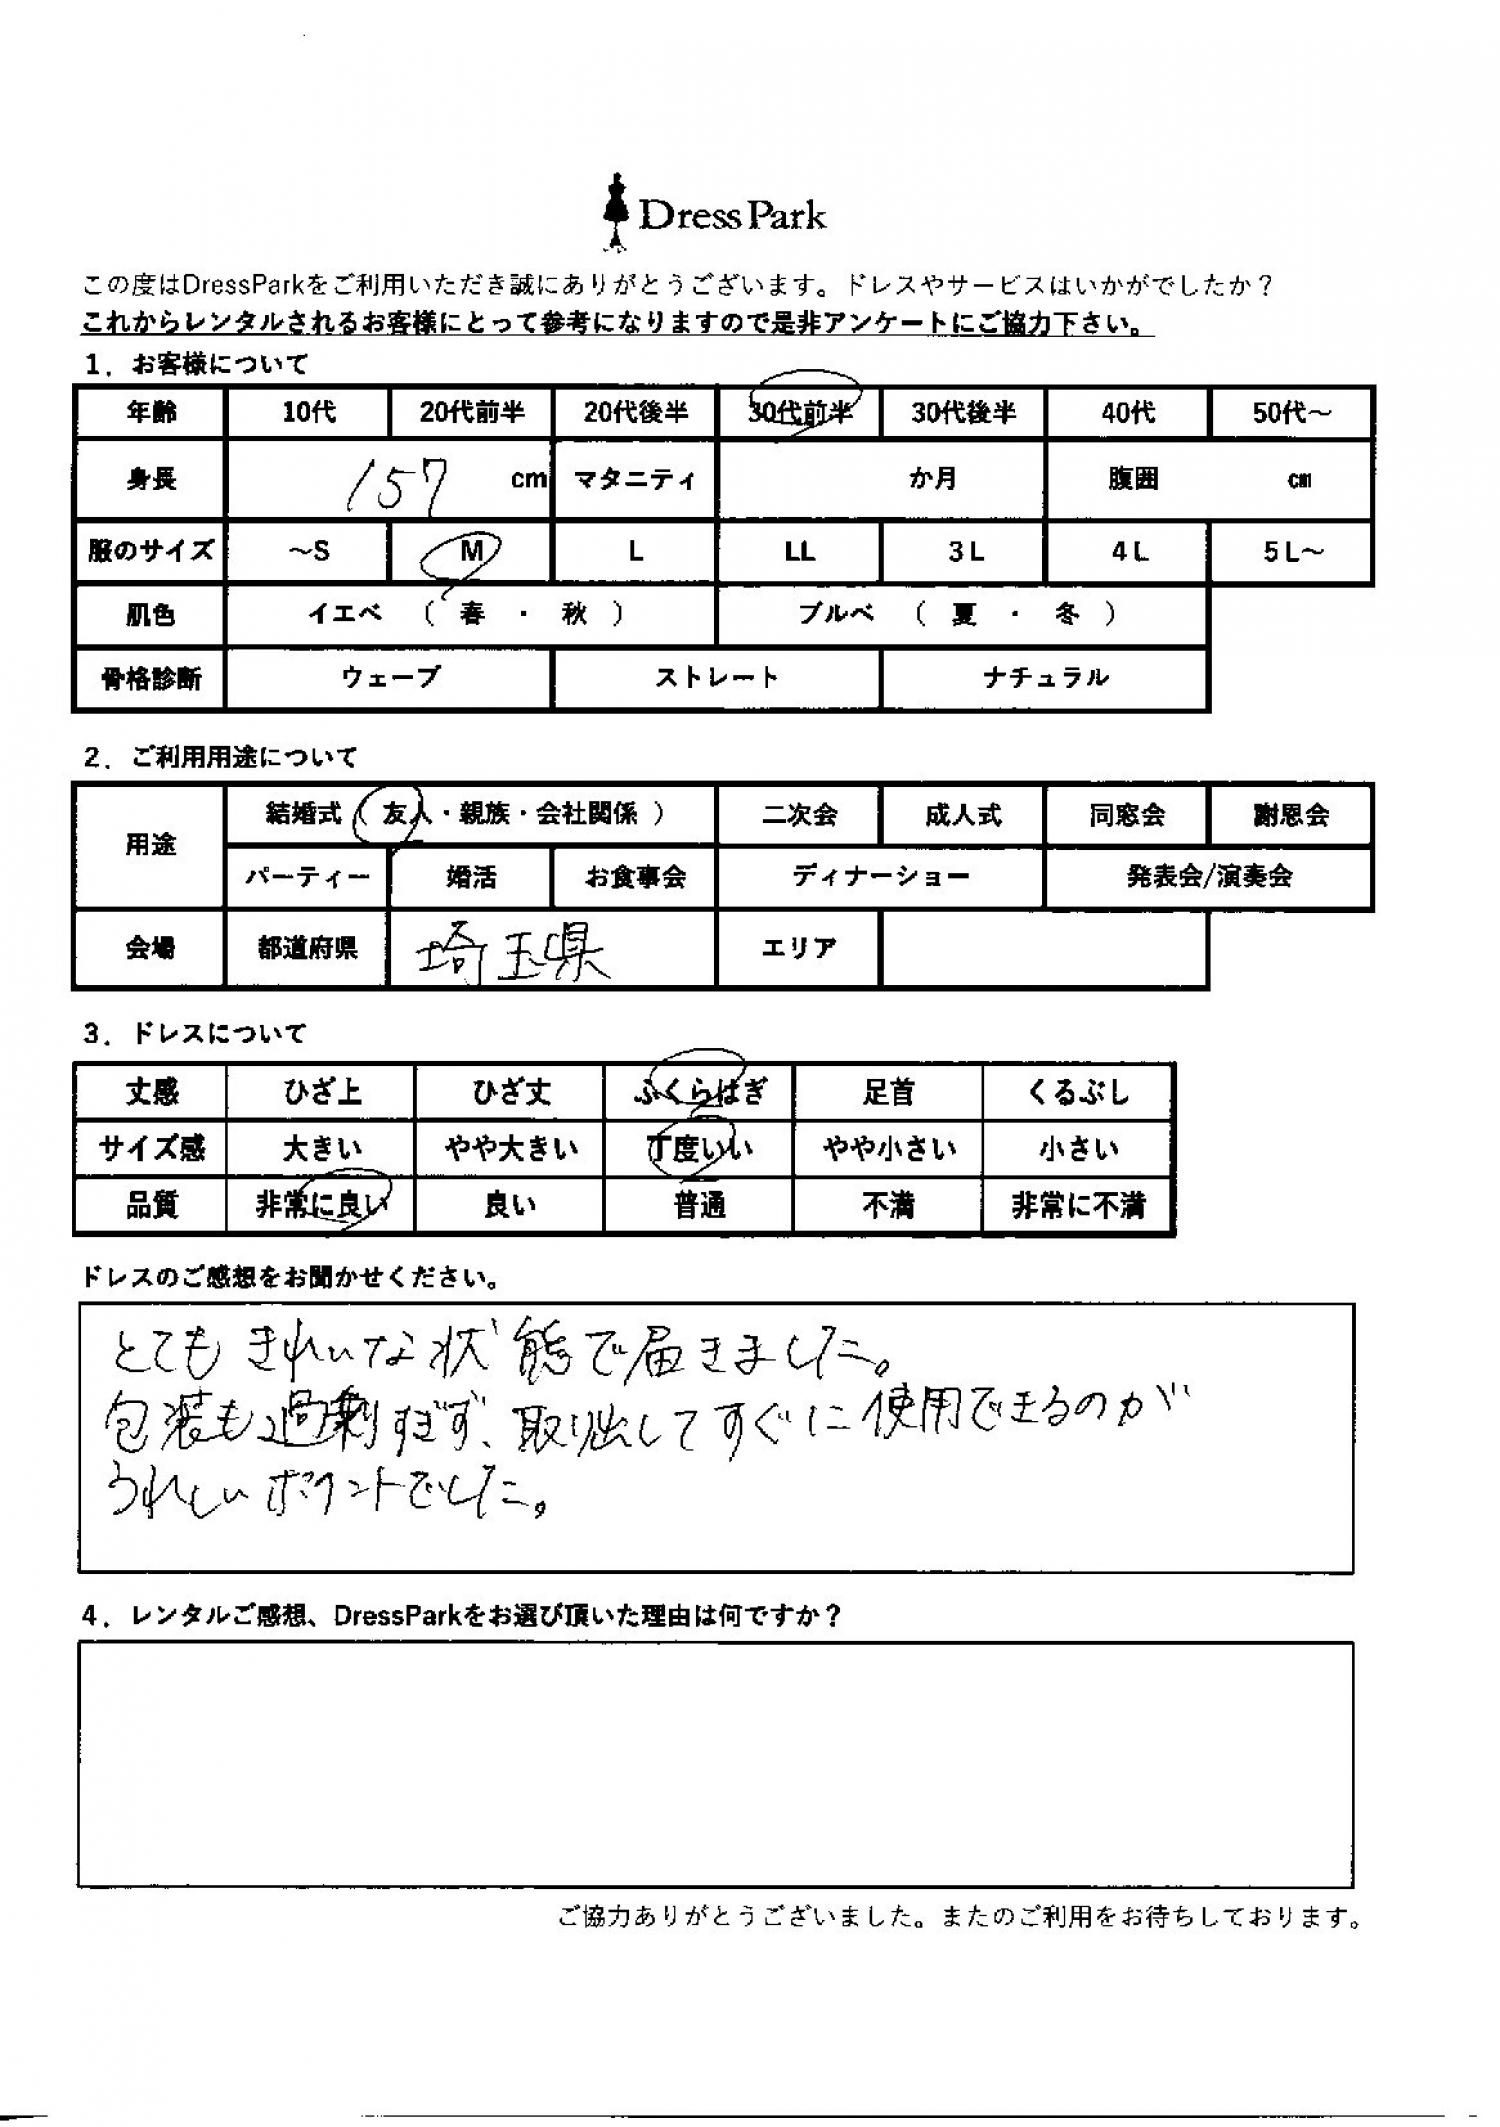 Dress Park
この度はDressParkをご利用いただき誠にありがとうございます。ドレスやサービスはいかがでしたか？
これからレンタルされるお客様にとって参考になりますので是非アンケートにご協力下さい。
1．お客様について
年齢 10代 20代前半 20代後半 30代前半 30代後半 40代 50代～
身長 157 cm マタニティ か月 腹囲 ㎝
服のサイズ ～S M L LL 3L 4L 5L～
肌色 イエベ （ 春 ・ 秋 ） ブルベ （ 夏 ・ 冬 ）
骨格診断 ウェーブ ストレート ナチュラル
2．ご利用用途について
用途 結婚式（ 友人・親族・会社関係 ） 二次会 成人式 同窓会 謝恩会
パーティー 婚活 お食事会 ディナーショー 発表会/演奏会
会場 都道府県 埼玉県 エリア
3．ドレスについて
丈感 ひざ上 ひざ丈 ふくらはぎ 足首 くるぶし
サイズ感 大きい やや大きい 丁度いい やや小さい 小さい
品質 非常に良い 良い 普通 不満 非常に不満
ドレスのご感想をお聞かせください。
とてもきれいな状態で届きました。
包装も過剰すぎず、取り出してすぐに使用できるのが
うれしいポイントでした。
4．レンタルご感想、DressParkをお選び頂いた理由は何ですか？
ご協力ありがとうございました。またのご利用をお待ちしております。